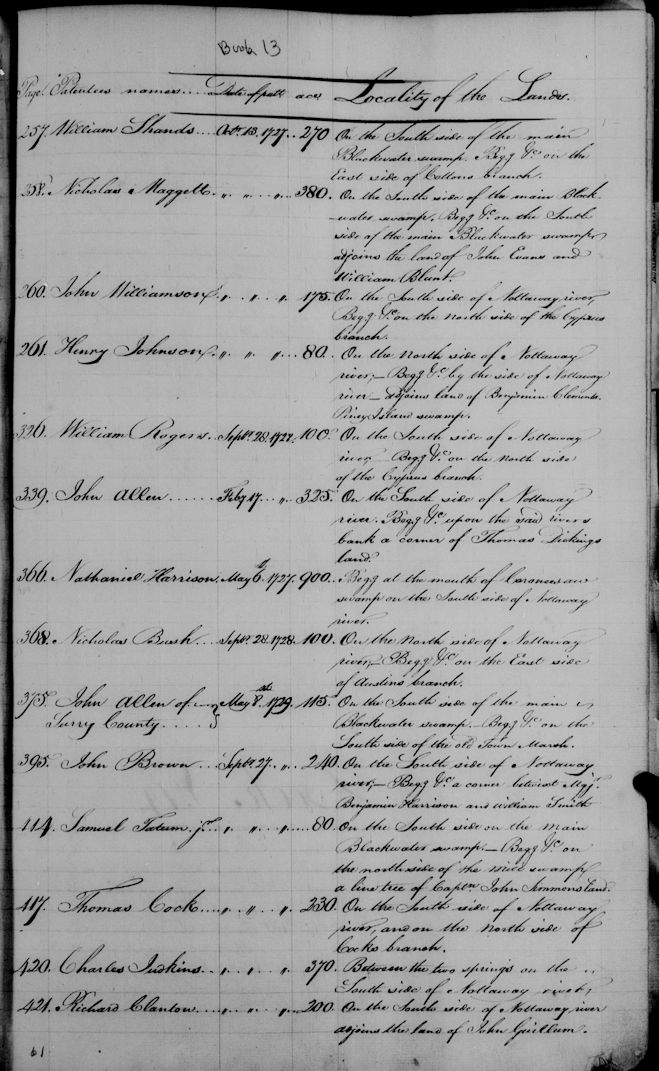 Book 13
Page Patentees names.... Date of patt acs Locality of the Lands.
257. William Shands.... Octr. 13. 1727.. 270 On the South side of the main
Blackwater swamp. Beg.g &c. on the
East side of Cottons branch.
258. Nicholas Maggett. " " " .... 380. On the South side of the main Black
-water swamp. Beg.g &c. on the South
side of the main Blackwater swamp,
adjoins the land of John Evans and
William Blunt.
260. John Williamson. " " " .. 175. On the South side of Nottaway river,
Beg.g &c. on the North side of the Cyprus
branch.
261. Henry Johnson. " " " .... 80. On the North side of Nottaway
river;— Beg.g &c. by the side of Nottaway
river— adjoins land of Benjamin Clements.
Piney Island swamp.
326. William Rogers. Septr. 28. 1728. 100. On the South side of Nottaway
river Beg.g &c. on the North side
of the Cyprus branch.
339. John Allen ...... Feby 17 ... " .. 325. On the South side of Nottaway
river. Beg.g &c. upon the said rivers
bank a corner of Thomas Dickings
land.
366. Nathaniel Harrison. May 6. 1727. 900. Beg.g at the mouth of
swamp on the South side of Nottaway
river.
368. Nicholas Bush.... Septr. 28. 1728. 100. On the North side of Nottaway
river,— Beg.g &c. on the East side
of Austins branch.
375. John Allen of May 8. 1729. 115. On the South side of the main
Surry County..... Blackwater swamp. Beg.g &c. on the
South side of the old Town Marsh.
395. John Brown... Septr. 27. " .. 240. On the South side of Nottaway
river;— Beg.g &c. a corner betwixt Majr.
Benjamin Harrison and William Smith
414. Samuel Tatum jr. " " " ..... 80. On the South side on the main
Blackwater swamp.— Beg.g &c. on
the north side of the swamp
a line tree of Captn. John Simmons land.
417. Thomas Cock.... " " " .. 230. On the South side of Nottaway
river, and on the North side of
Cocks branch.
420. Charles Judkins.. " " " .... 370. Between the two springs on the
South side of Nottaway river,
421. Richard Clanton.... " " " .... 200. On the South side of Nottaway river
adjoins the land of John Guillum.
61